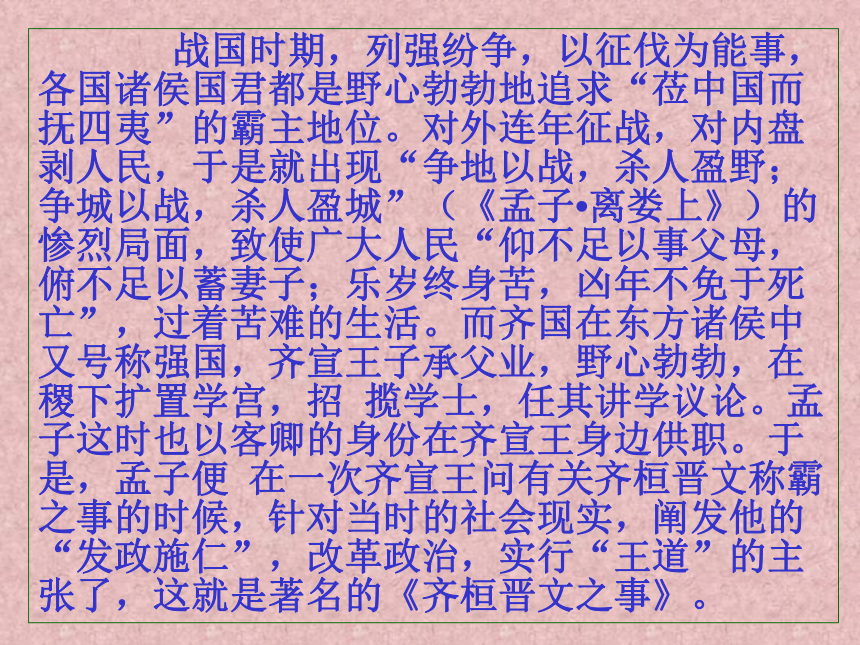 战国时期，列强纷争，以征伐为能事，
各国诸侯国君都是野心勃勃地追求“莅中国而
抚四夷”的霸主地位。对外连年征战，对内盘
剥人民，于是就出现“争地以战，杀人盈野；
争城以战，杀人盈城”（《孟子•离娄上》）的
惨烈局面，致使广大人民“仰不足以事父母，
俯不足以蓄妻子；乐岁终身苦，凶年不免于死
亡”，过着苦难的生活。而齐国在东方诸侯中
又号称强国，齐宣王子承父业，野心勃勃，在
稷下扩置学宫，招 揽学士，任其讲学议论。孟
子这时也以客卿的身份在齐宣王身边供职。于
是，孟子便 在一次齐宣王问有关齐桓晋文称霸
之事的时候，针对当时的社会现实，阐发他的
“发政施仁”，改革政治，实行“王道”的主
张了，这就是著名的《齐桓晋文之事》。